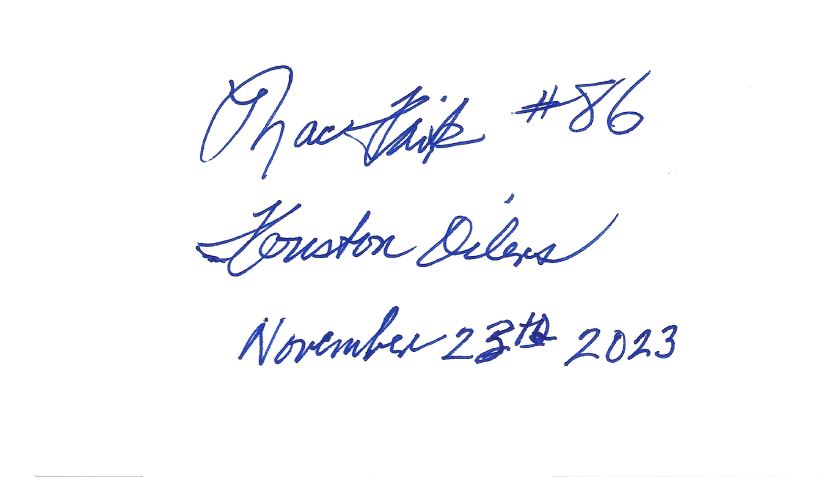 Mac Haik #86
Houston Oilers
November 23th 2023